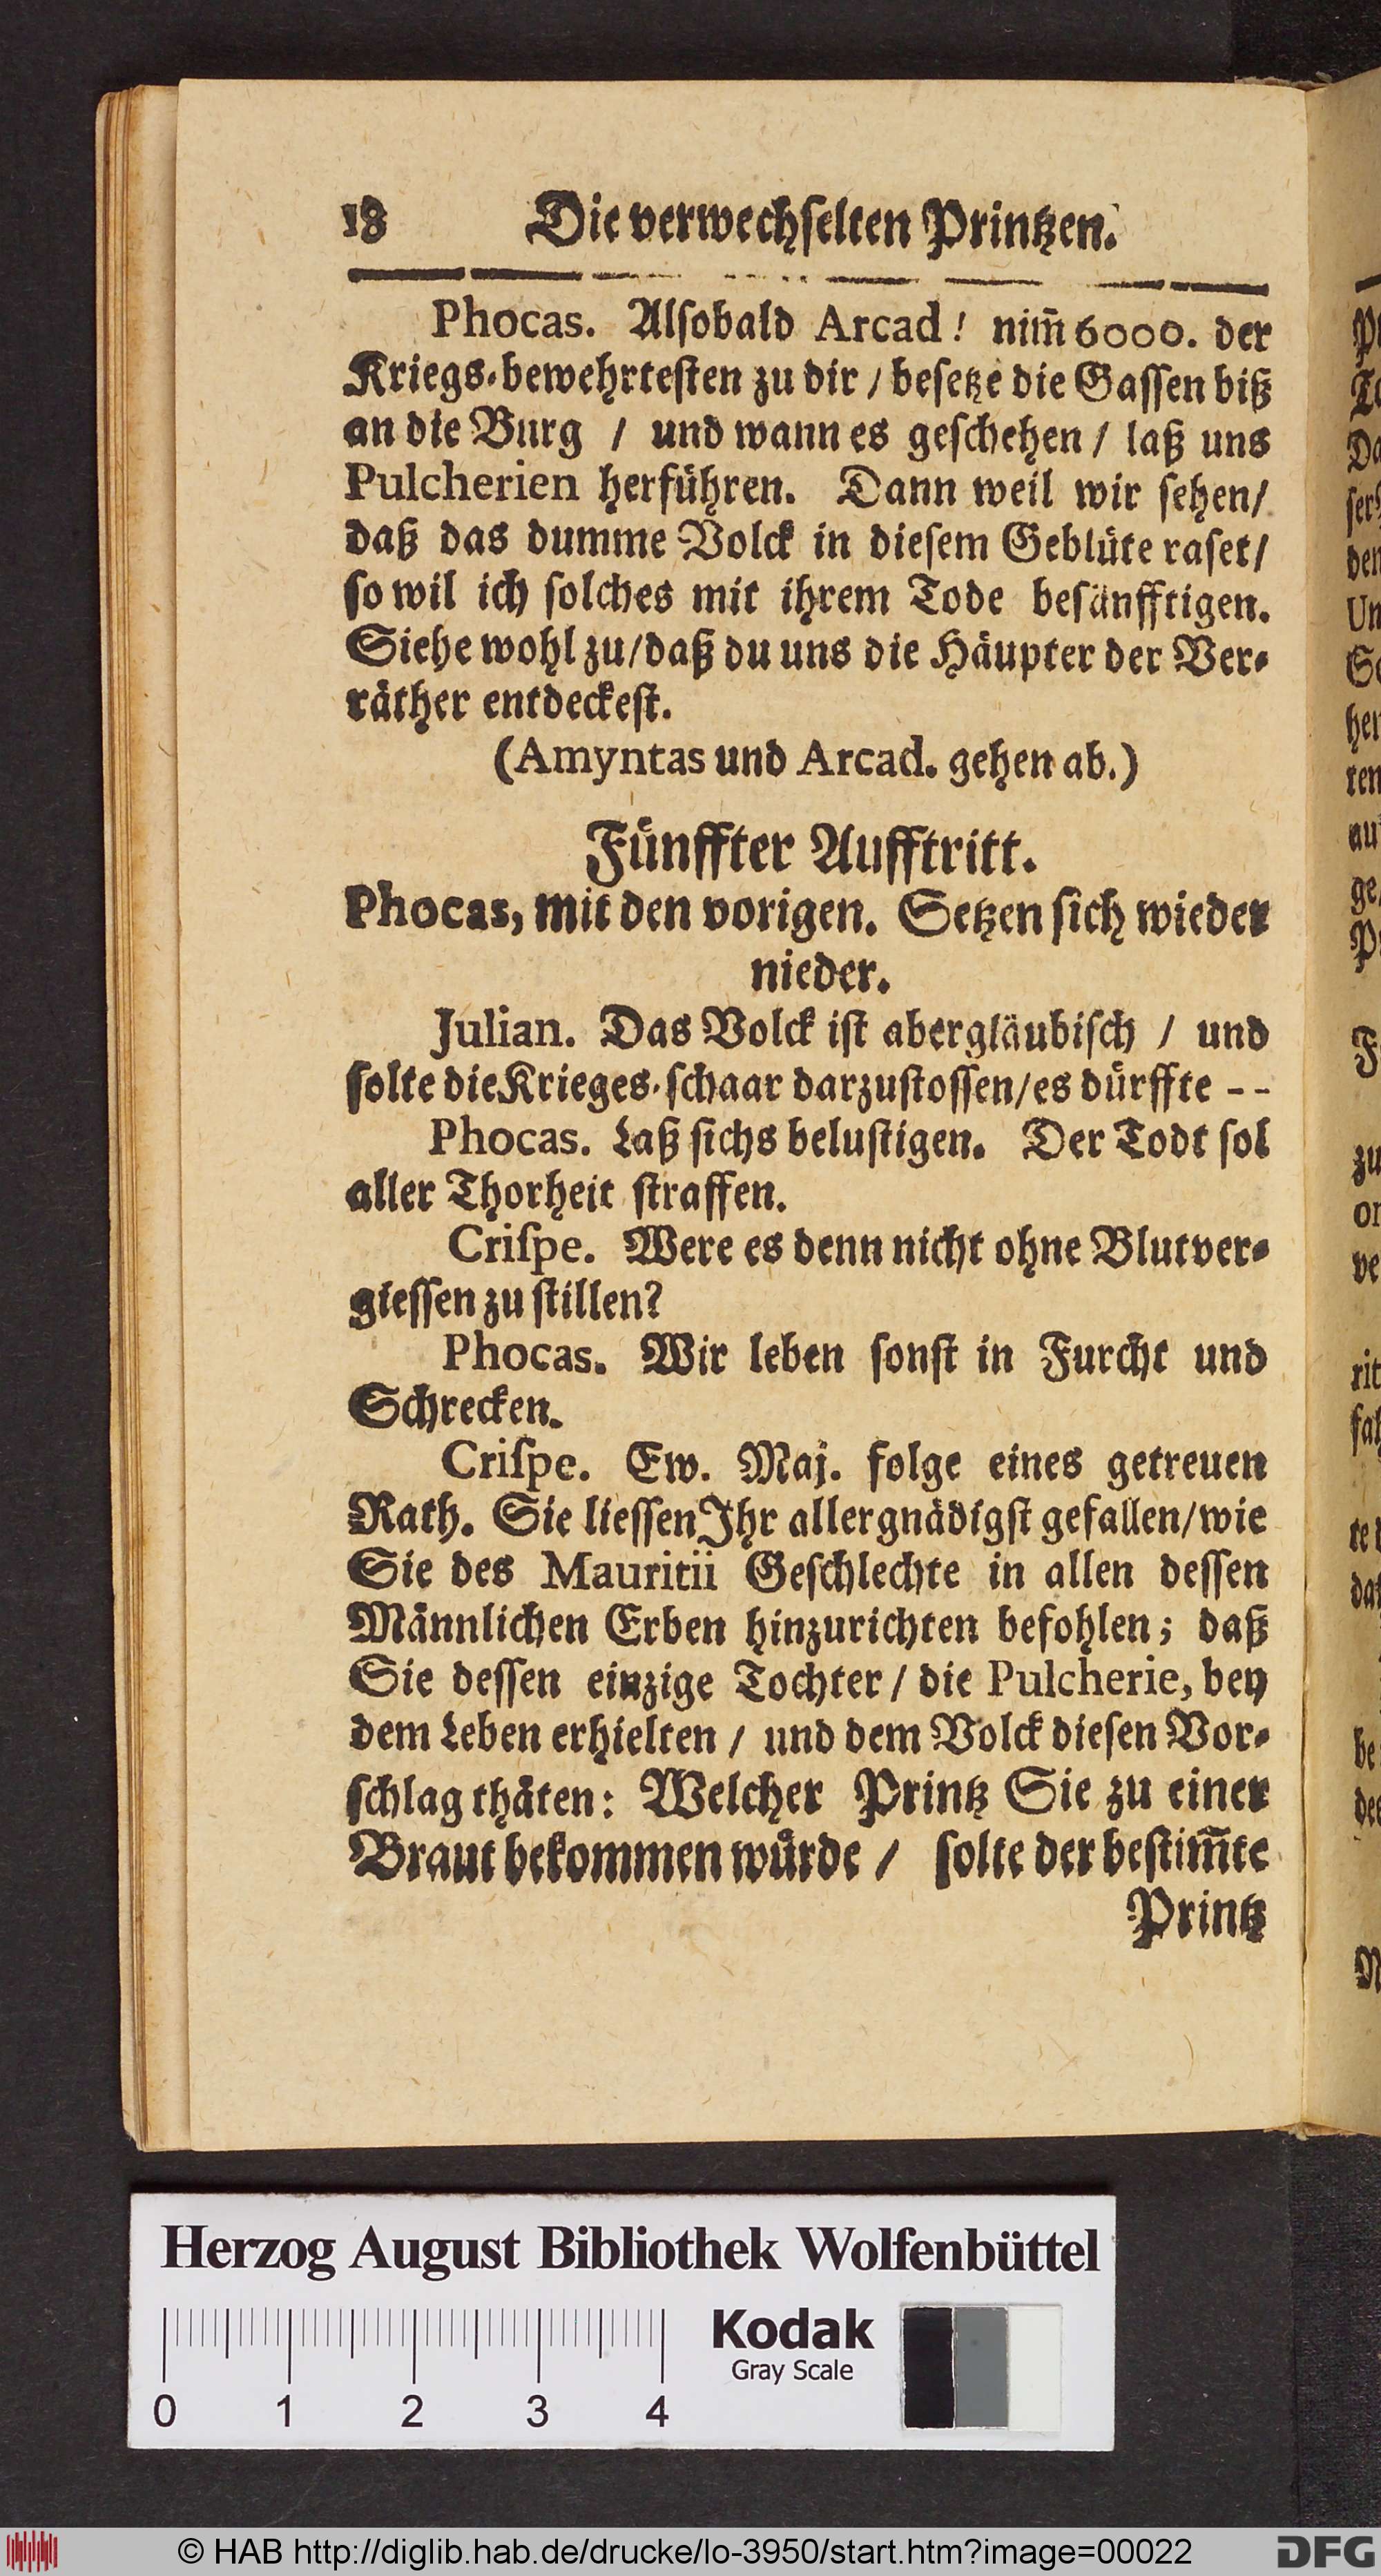 18 Die verwechſelten Printzen.
Phocas. Alſobald Arcad! nim̃ 6000. der
Kriegs-bewehrteſten zu dir / beſetze die Gaſſen biß
an die Burg / und wann es geſchehen / laß uns
Pulcherien herführen. Dann weil wir ſehen/
daß das dumme Volck in dieſem Geblüte raſet/
ſo wil ich ſolches mit ihrem Tode beſänfftigen.
Siehe wohl zu/daß du uns die Häupter der Ver-
räther entdeckeſt.
(Amyntas und Arcad. gehen ab.)
Fünffter Aufftritt.
Phocas, mit den vorigen. Setzen ſich wieder
nieder.
Julian. Das Volck iſt abergläubiſch / und
ſolte die Krieges-ſchaar darzuſtoſſen/es dürffte - -
Phocas. Laß ſichs beluſtigen. Der Todt ſol
aller Thorheit ſtraffen.
Criſpe. Were es denn nicht ohne Blutver-
gieſſen zu ſtillen?
Phocas. Wir leben ſonſt in Furcht und
Schrecken.
Criſpe. Ew. Maj. folge eines getreuen
Rath. Sie lieſſen Ihr allergnädigſt gefallen/wie
Sie des Mauritii Geſchlechte in allen deſſen
Männlichen Erben hinzurichten befohlen; daß
Sie deſſen einzige Tochter / die Pulcherie, bey
dem Leben erhielten / und dem Volck dieſen Vor-
ſchlag thäten: Welcher Printz Sie zu einer
Braut bekommen würde / ſolte der beſtim̃te
Printz
Herzog August Bibliothek Wolfenbüttel
Kodak
Gray Scale
0 1 2 3 4
© HAB http://diglib.hab.de/drucke/lo-3950/start.htm?image=00022
DFG